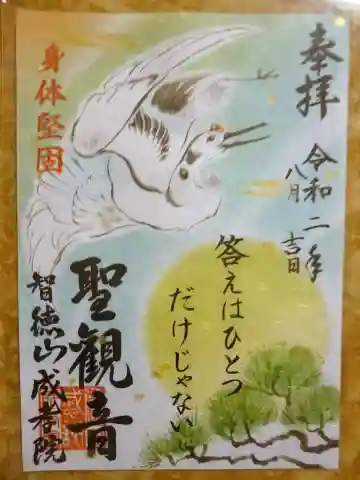 奉拝
令和二年
八月吉日
答えはひとつ
だけじゃない
身体堅固
聖観音
智徳山成孝院